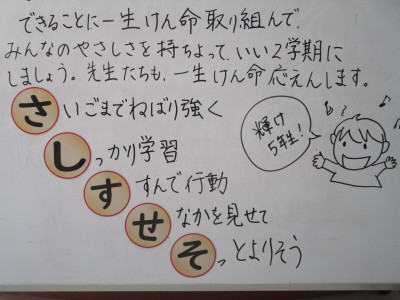 できることに一生けん命取り組んで、
みんなのやさしさを持ちよって、いい2学期に
しましょう。先生たちも、一生けん命応えんします。
さいごまでねばり強く
しっかり学習
すすんで行動
せなかを見せて
そっとよりそう
輝け
5年生!